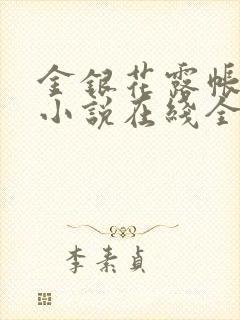 金銀花露帳
小説在綫全
李素貞